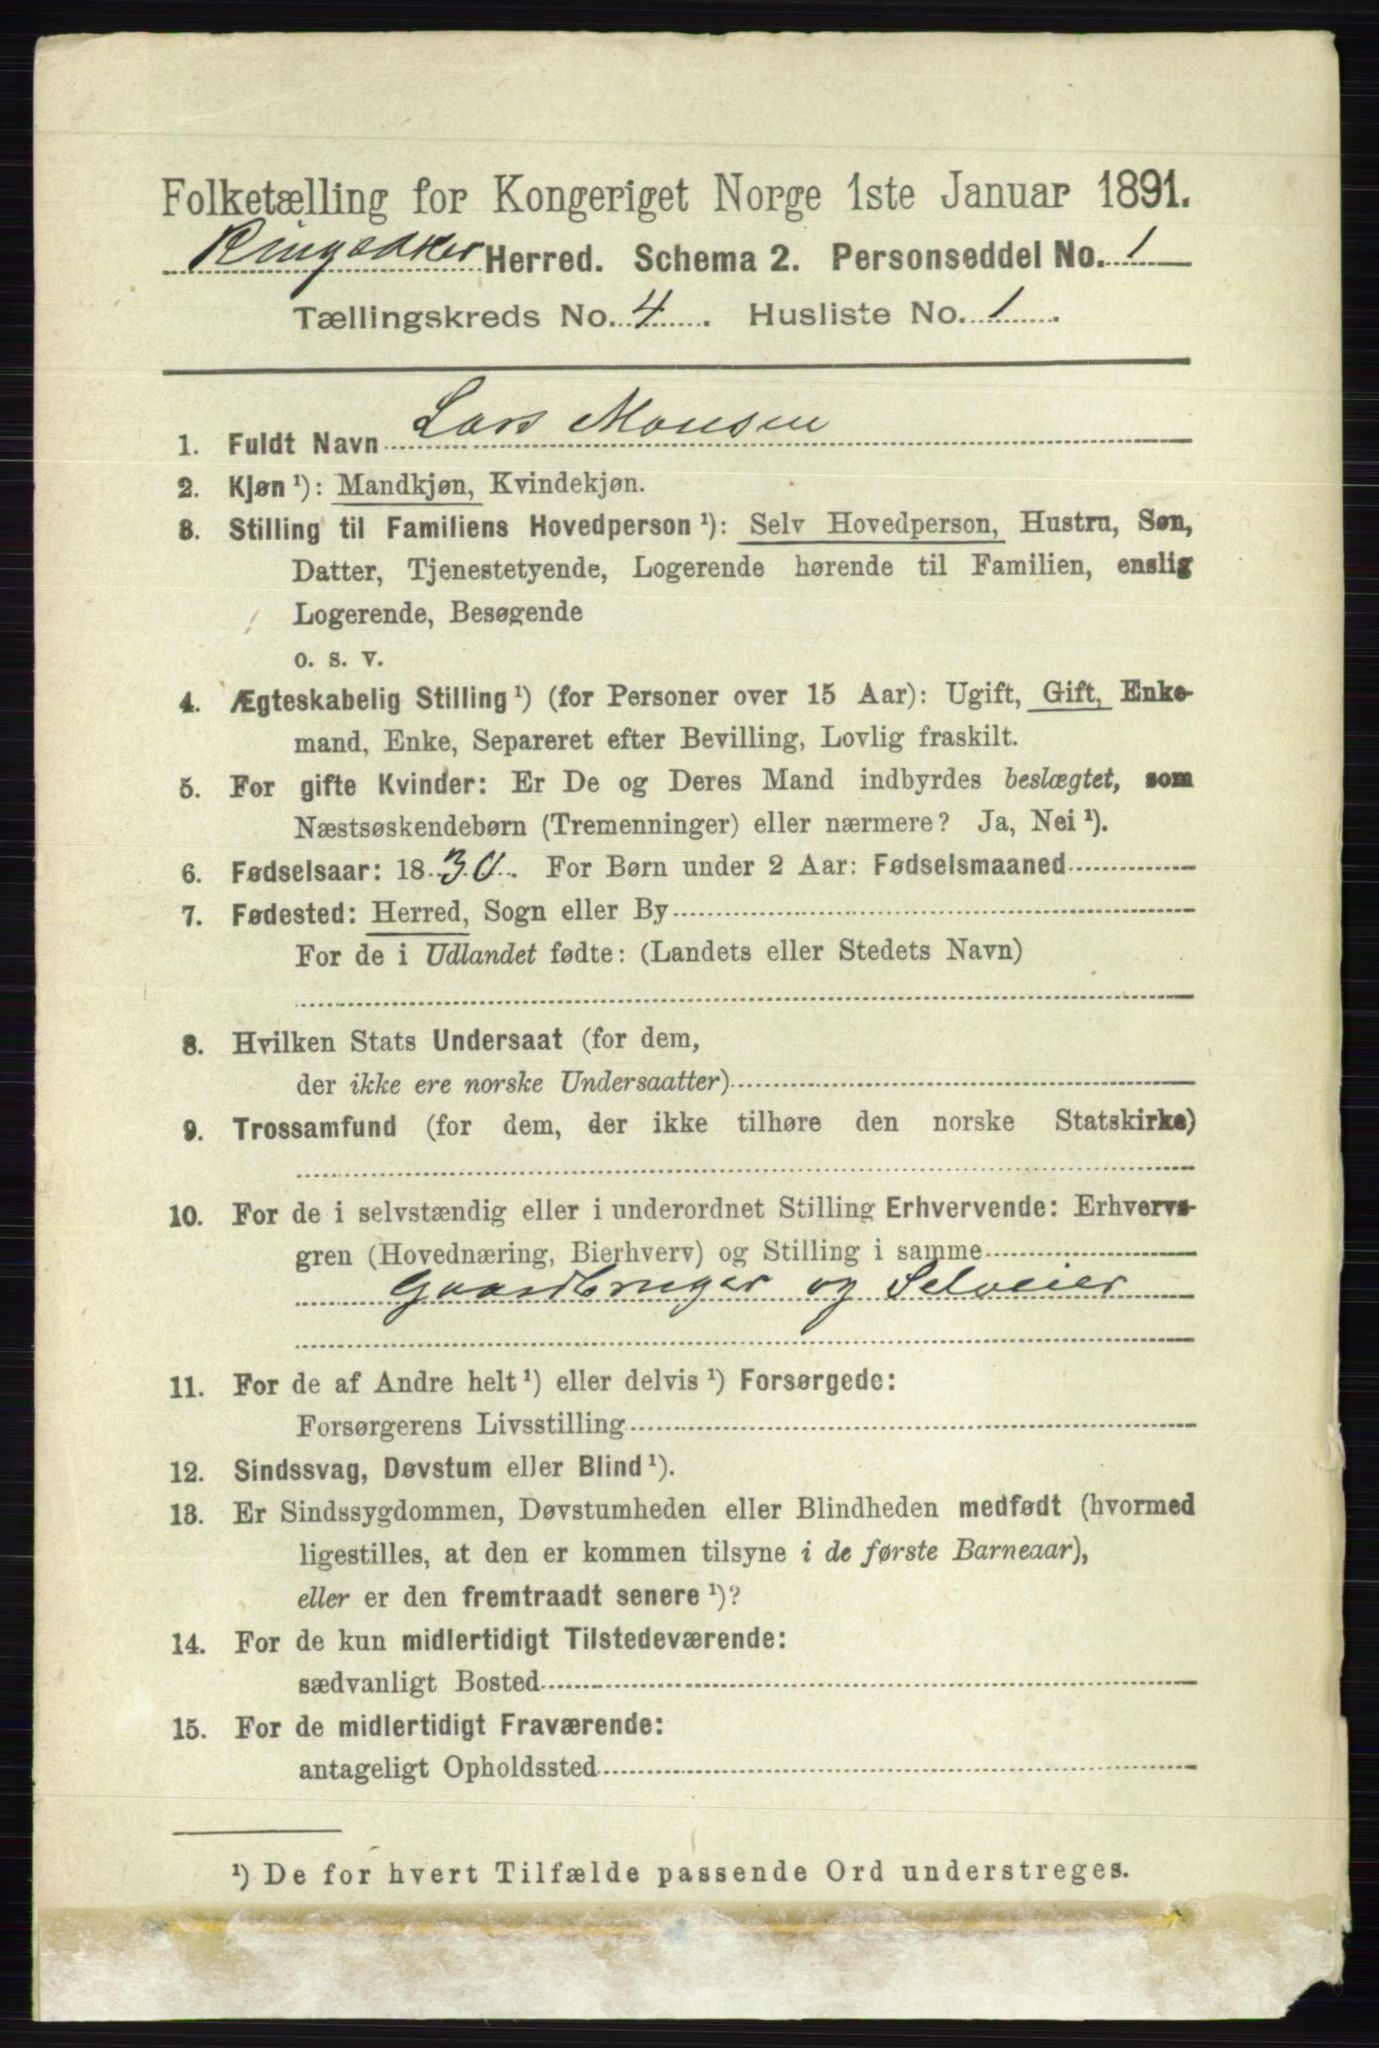 Folketælling for Kongeriget Norge 1ste Januar 1891.
Ringsaker Herred. Schema 2. Personseddel No. 1
Tællingskreds No. 4. Husliste No. 1.
1. Fuldt Navn Lars Monsen
2. Kjøn ¹): Mandkjøn, Kvindekjøn.
3. Stilling til Familiens Hovedperson ¹): Selv Hovedperson, Hustru, Søn,
Datter, Tjenestetyende, Logerende hørende til Familien, enslig
Logerende, Besøgende
o. s. v.
4. Ægteskabelig Stilling ¹) (for Personer over 15 Aar): Ugift, Gift, Enke-
mand, Enke, Separeret efter Bevilling, Lovlig fraskilt.
5. For gifte Kvinder: Er De og Deres Mand indbyrdes beslægtet, som
Næstsøskendebørn (Tremenninger) eller nærmere? Ja, Nei ¹).
6. Fødselsaar: 1830. For Børn under 2 Aar: Fødselsmaaned
7. Fødested: Herred, Sogn eller By
For de i Udlandet fødte: (Landets eller Stedets Navn)
8. Hvilken Stats Undersaat (for dem,
der ikke ere norske Undersaatter)
9. Trossamfund (for dem, der ikke tilhøre den norske Statskirke)
10. For de i selvstændig eller i underordnet Stilling Erhvervende: Erhvervs-
gren (Hovednæring, Bierhverv) og Stilling i samme
Gaardbruger og Selveier
11. For de af Andre helt ¹) eller delvis ¹) Forsørgede:
Forsørgerens Livsstilling
12. Sindssvag, Døvstum eller Blind ¹).
13. Er Sindssygdommen, Døvstumheden eller Blindheden medfødt (hvormed
ligestilles, at den er kommen tilsyne i de første Barneaar),
eller er den fremtraadt senere ¹)?
14. For de kun midlertidigt Tilstedeværende:
sædvanligt Bosted
15. For de midlertidigt Fraværende:
antageligt Opholdssted
¹) De for hvert Tilfælde passende Ord understreges.